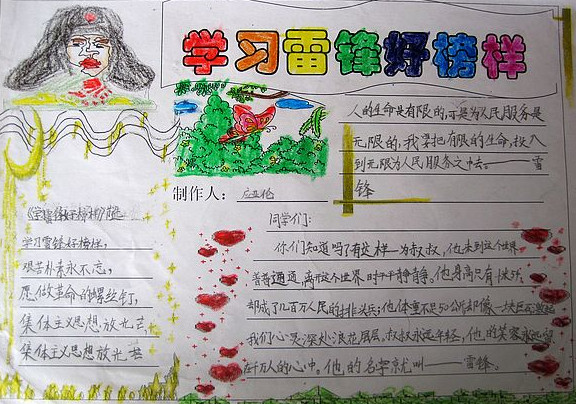 学习雷锋好榜样
人的生命是有限的,可是为人民服务是
无限的,我要把有限的生命,投入
到无限为人民服务之中去。——雷
锋
制作人:
《学习雷锋好榜样》
学习雷锋好榜样,
艰苦朴素永不忘,
愿做革命的螺丝钉,
集体主义思想放光芒,
集体主义思想放光芒
同学们:
你们知道吗?有这样一为叔叔,他来到这个世界
普普通通,离开这个世界时平平静静。他身高只有
却成了几百万人民的排头兵;他体重不足50公斤却像一块巨石激起
我们心灵深处浪花层层,叔叔永远年轻,他的笑容永远
在千万人的心中。他的名字就叫——雷锋。